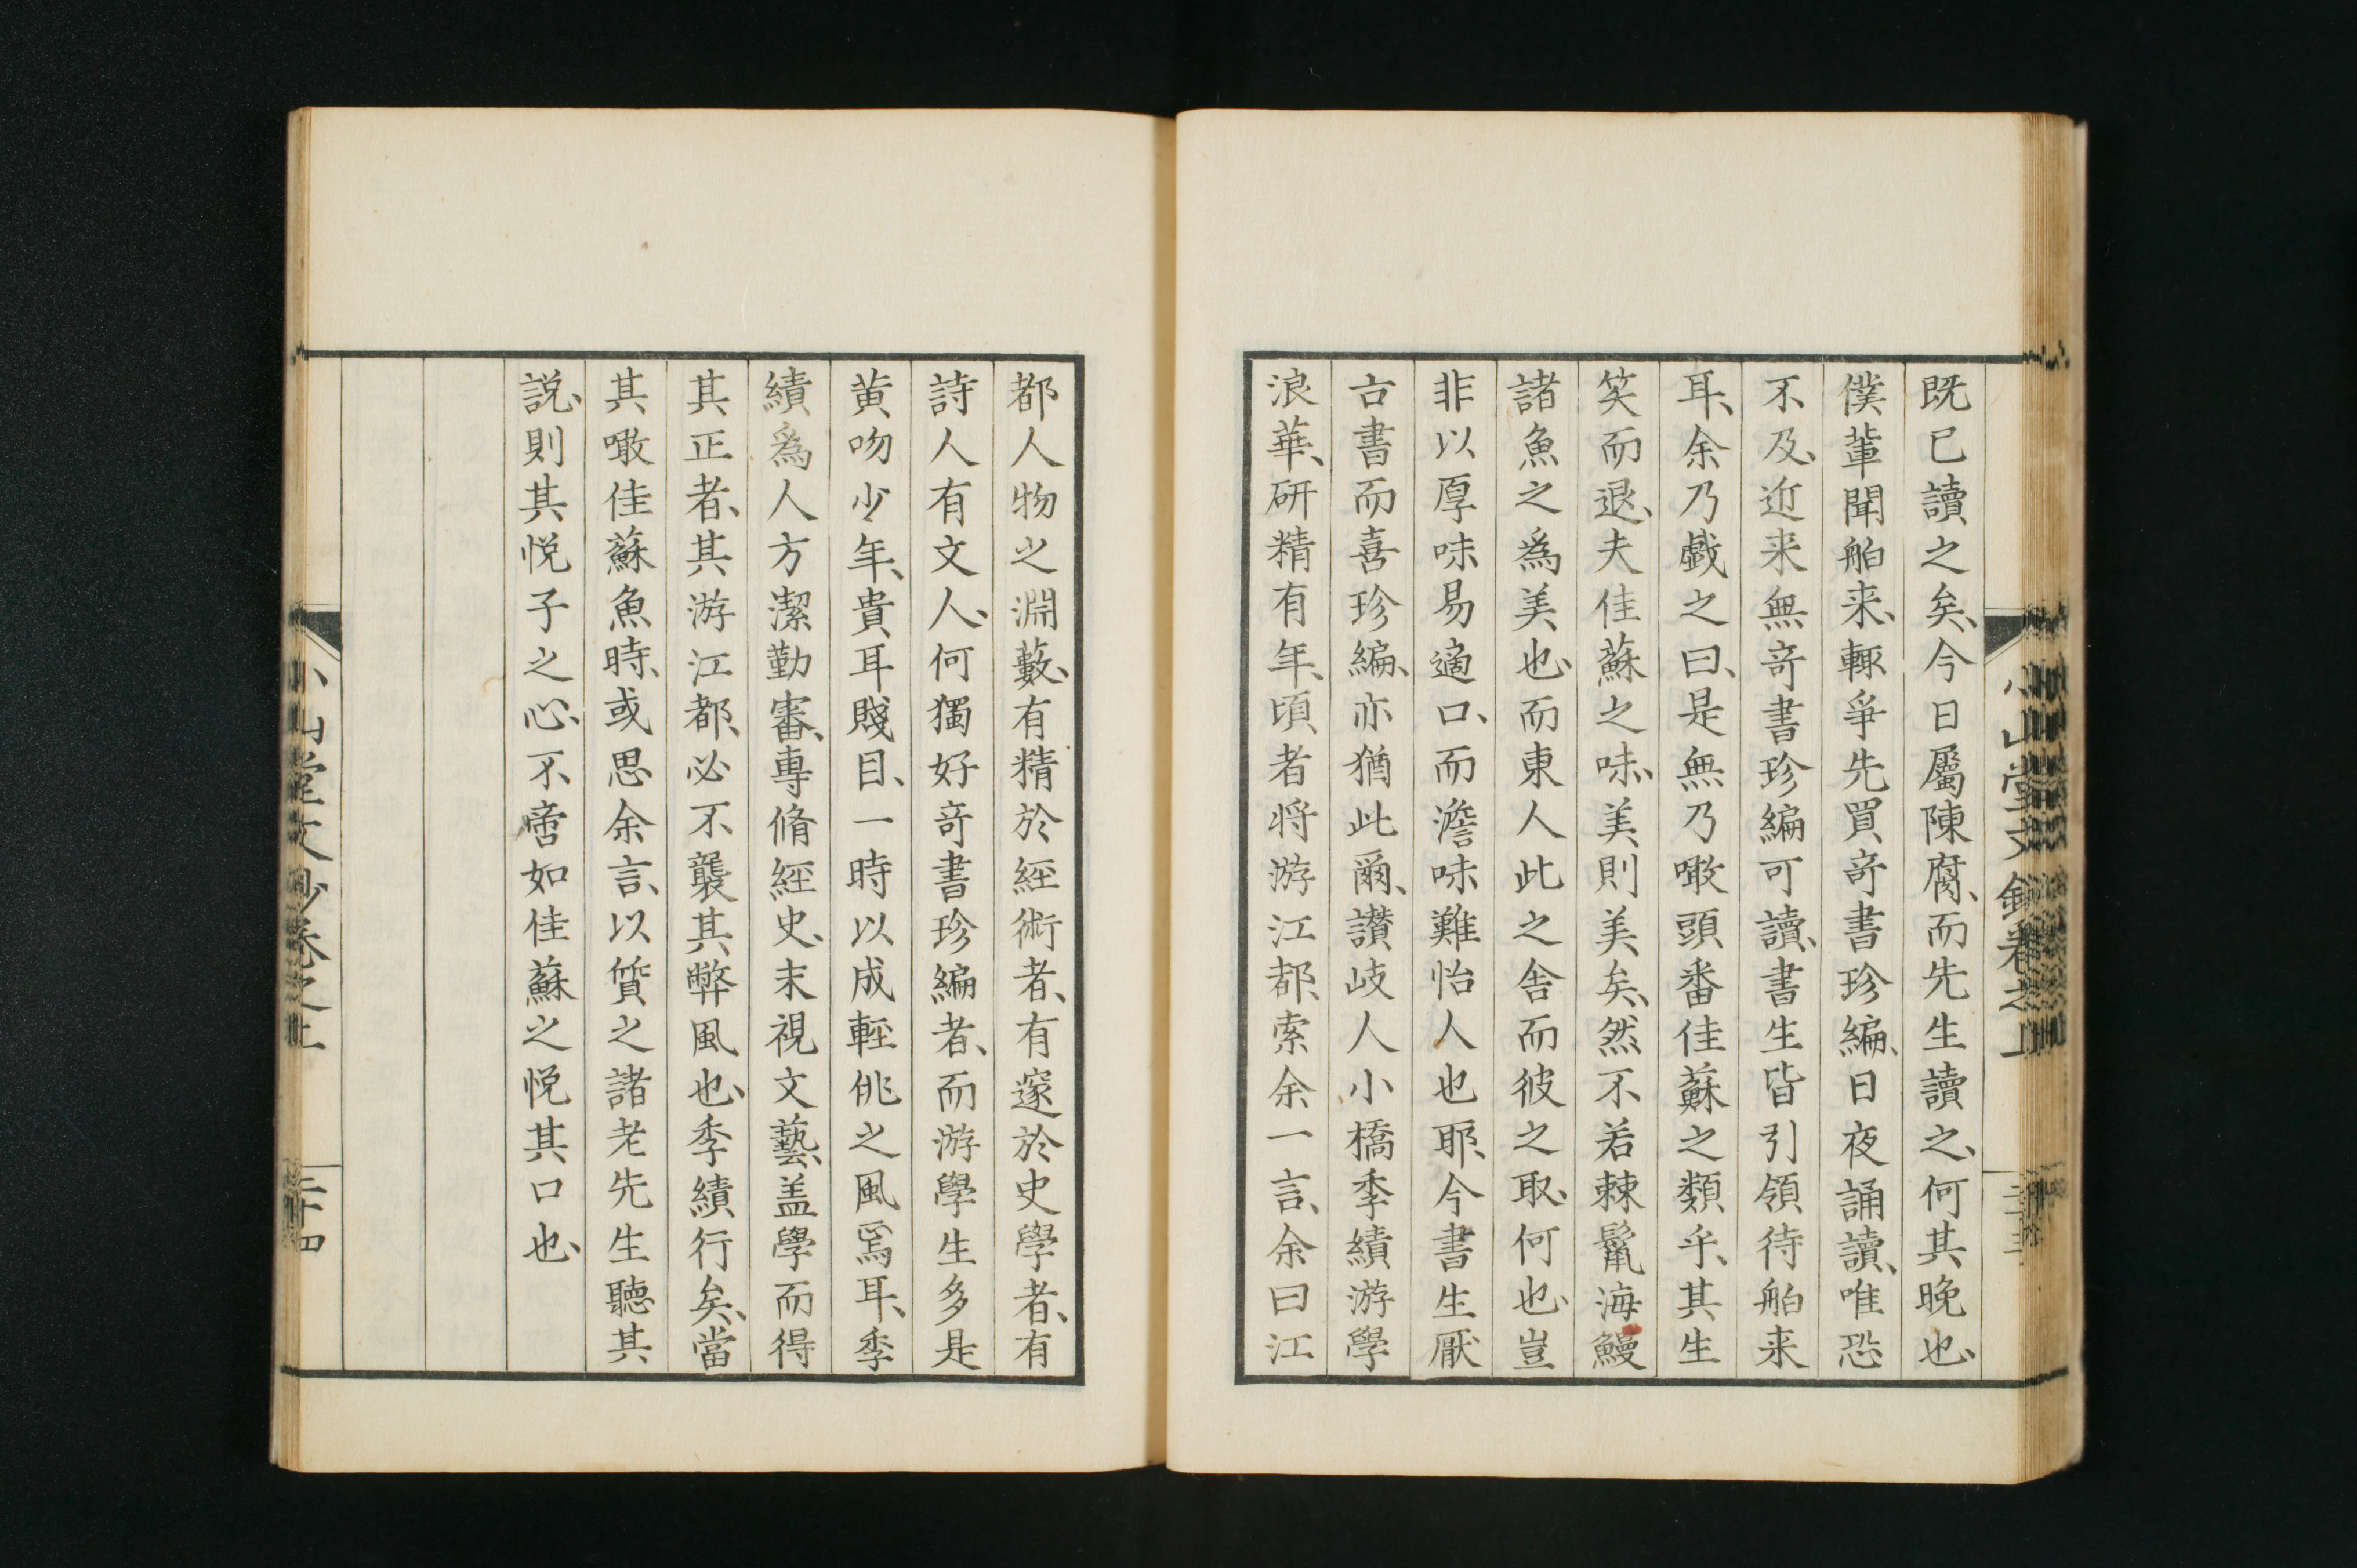 既已讀之矣、今日屬陳腐、而先生讀之、何其晚也、
僕輩聞舶来、輙爭先買竒書珍編、日夜誦讀、唯恐
不及、近来無竒書珍編可讀、書生皆引領待舶来
耳、余乃戯之曰、是無乃噉頭番佳蘇之類乎、其生
笑而退、夫佳蘇之味、美則美矣、然不若棘鬣海鰻
諸魚之為美也、而東人此之舎而彼之取、何也、豈
非以厚味易適口、而澹味難怡人也耶、今書生厭
古書而喜珍編、亦猶此爾、讃岐人小橋季績游學
浪華、研精有年、頃者将游江都、索余一言、余曰江
都人物之淵藪、有精於經術者、有邃於史學者、有
詩人有文人、何獨好竒書珍編者、而游學生多是
黄吻少年、貴耳賤目、一時以成輕佻之風焉耳、季
績為人方潔勤審、專脩經史、末視文藝、盖學而得
其正者、其游江都、必不襲其弊風也、季績行矣、當
其噉佳蘇魚時、或思余言、以質之諸老先生聽其
説、則其悦子之心、不啻如佳蘇之悦其口也、
小山堂文鈔卷之上
二十四